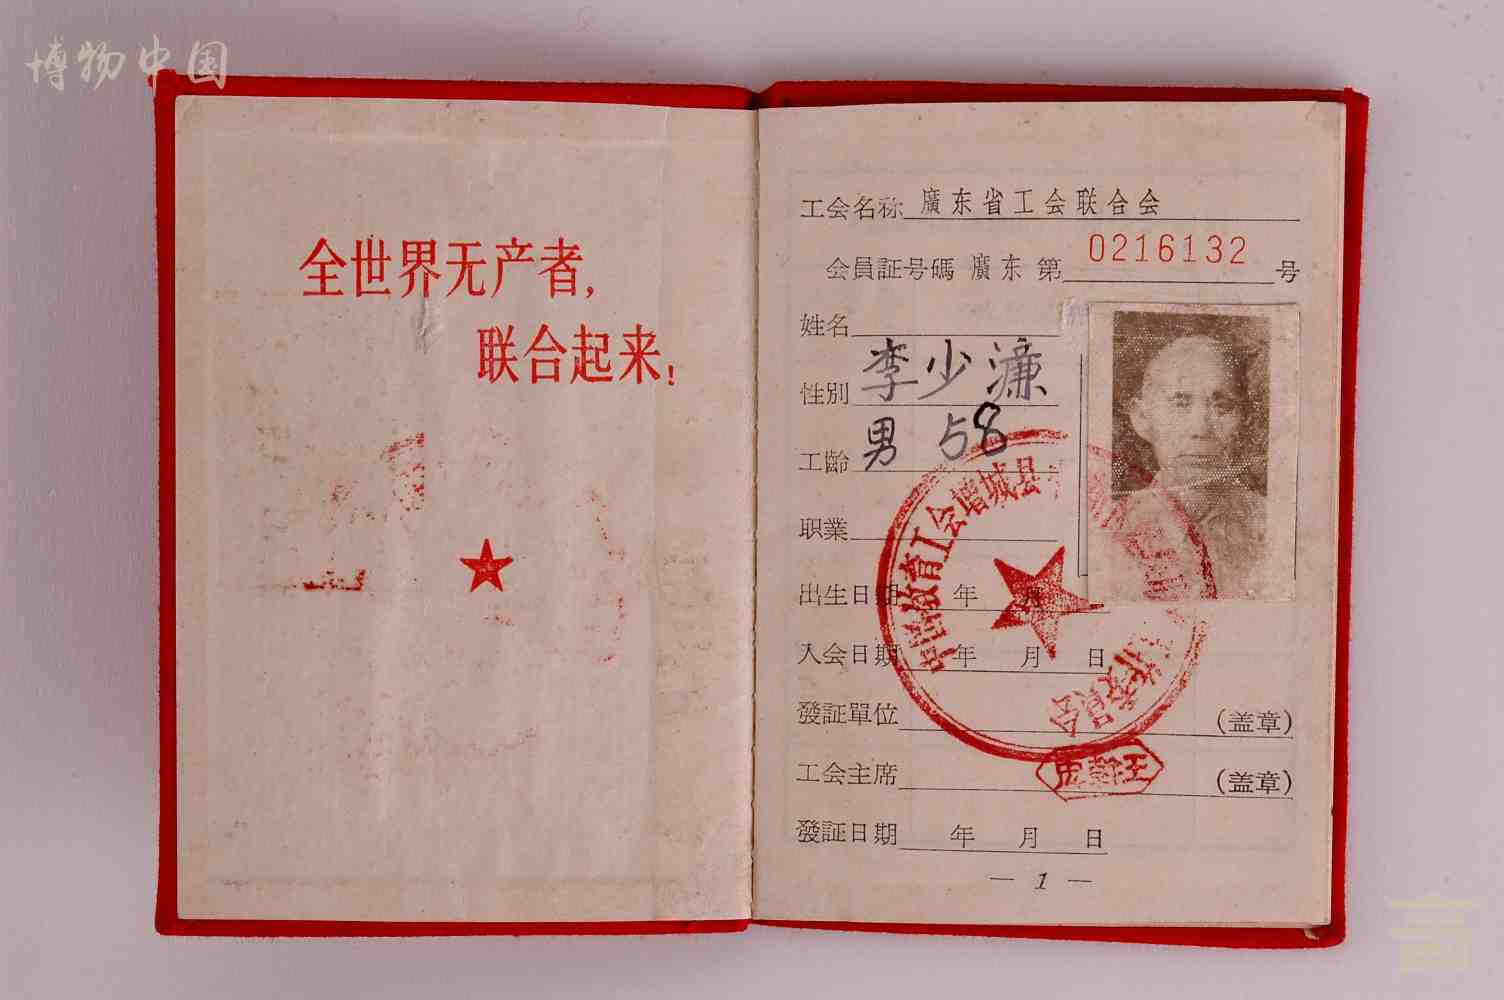 博物中国
全世界无产者,
联合起来!
工会名称 廣东省工会联合会
会員証号碼 廣东 第 0216132 号
姓名
李少濂
性別
男 58
工齡
职業
出生日期 年 月
入会日期 年 月 日
發証單位 (盖章)
工会主席 (盖章)
發証日期 年 月 日
— 1 —
中国教育工会增城县
委員会